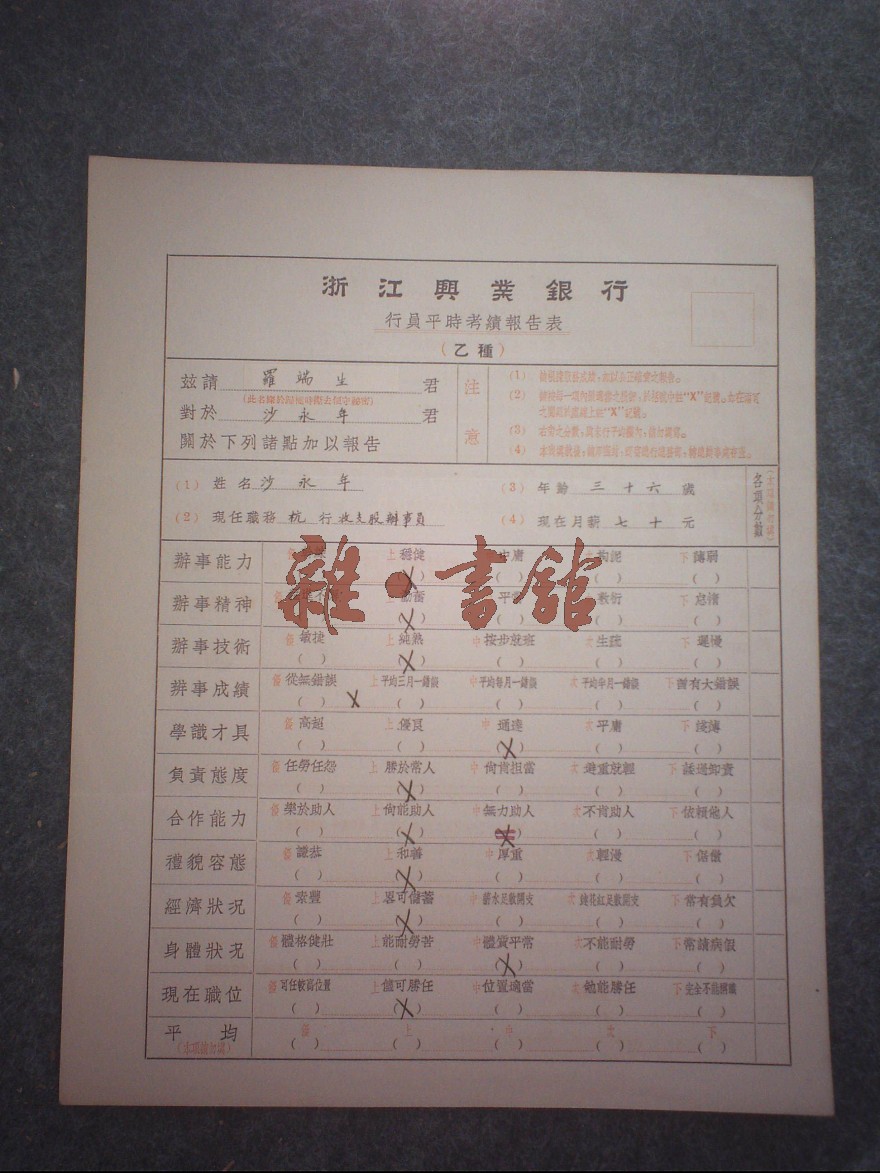 浙江興業銀行
行員平時考績報告表
(乙種)
茲請 羅瑞生 君
(此名條於歸檔時撕去保守秘密)
對於 沙永年 君
關於下列諸點加以報告
注意
(1)
(2)
(3)
(4)
(1) 姓名 沙永年
(3) 年齡 三十六歲
(2) 現任職務 杭行收支股辦事員
(4) 現在月薪 七十元
各項分數
辦事能力 優 上 穩健 中庸 拘泥 下
( ) (X) ( ) ( ) ( )
辦事精神 上 平常 敷衍 下 怠惰
(X) ( ) ( ) ( )
辦事技術 優 敏捷 上 純熟 中 按步就班 次 生疏 下 遲慢
( ) (X) ( ) ( ) ( )
辦事成績 優 從無錯誤 上 平均三月一錯誤 中 平均每月一錯誤 次 平均半月一錯誤 下 固有大錯誤
( ) X ( ) ( ) ( ) ( )
學識才具 優 高超 上 優良 中 通達 次 平庸 下 淺薄
( ) ( ) (X) ( ) ( )
負責態度 優 任勞任怨 上 勝於常人 中 尚肯担當 次 避重就輕 下 諉過卸責
( ) (X) ( ) ( ) ( )
合作能力 優 樂於助人 上 尚能助人 中 無力助人 次 不肯助人 下 依賴他人
( ) (X) (X) ( ) ( )
禮貌容態 優 謙恭 上 和善 中 厚重 次 輕慢 下 倨傲
( ) (X) ( ) ( ) ( )
經濟狀况 優 素豐 上 畧可儲蓄 中 薪水足敷開支 次 連花紅足敷開支 下 常有負欠
( ) (X) ( ) ( ) ( )
身體狀况 優 體格健壯 上 能耐勞苦 中 體質平常 次 不能耐勞 下 常請病假
( ) ( ) (X) ( ) ( )
現在職位 優 可任較高位置 上 儘可勝任 中 位置適當 次 勉能勝任 下 完全不能稱職
( ) (X) ( ) ( ) ( )
平均 優 上 中 次 下
(本項請勿填) ( ) ( ) ( ) ( ) ( )
雜·書館